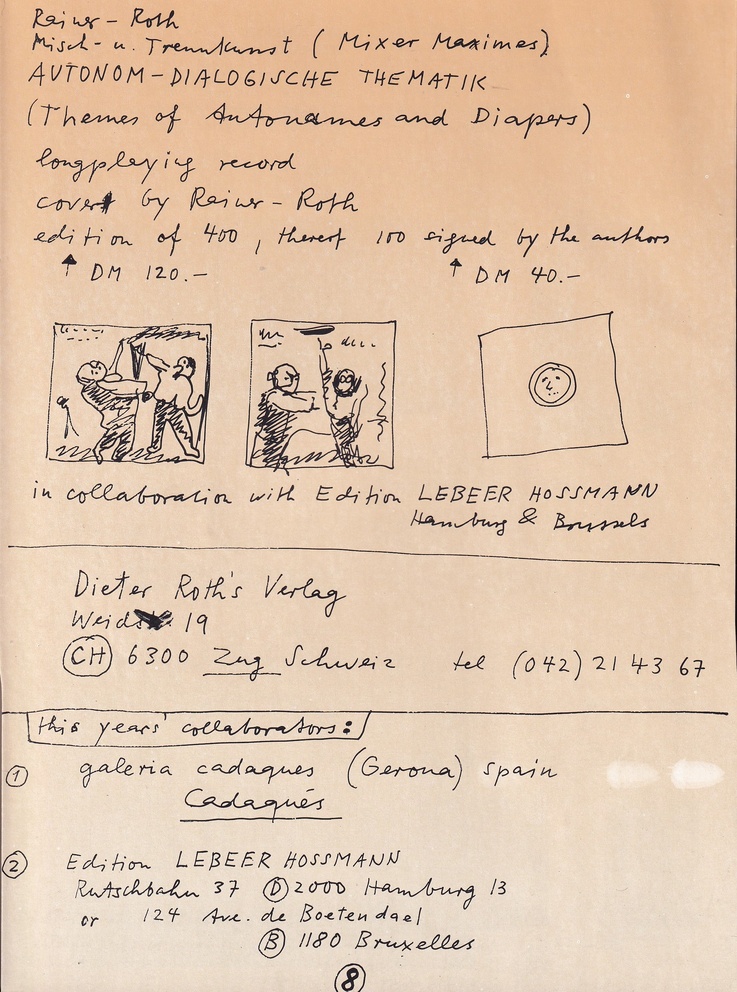 Rainer-Roth
Misch- u. Trennkunst (Mixer Maximes)
AUTONOM-DIALOGISCHE THEMATIK
(Themes of Autonomes and Diapers)
longplaying record
cover by Rainer-Roth
edition of 400, thereof 100 signed by the authors
↑ DM 120.-
↑ DM 40.-
in collaboration with Edition LEBEER HOSSMANN
Hamburg & Brussels
Dieter Roth's Verlag
Weidstr. 19
CH 6300 Zug Schweiz tel (042) 21 43 67
this years' collaborators:
1 galeria cadaques (Gerona) spain
Cadaqués
2 Edition LEBEER HOSSMANN
Rutschbahn 37 D 2000 Hamburg 13
or 124 Ave. de Boetendael
B 1180 Bruxelles
8